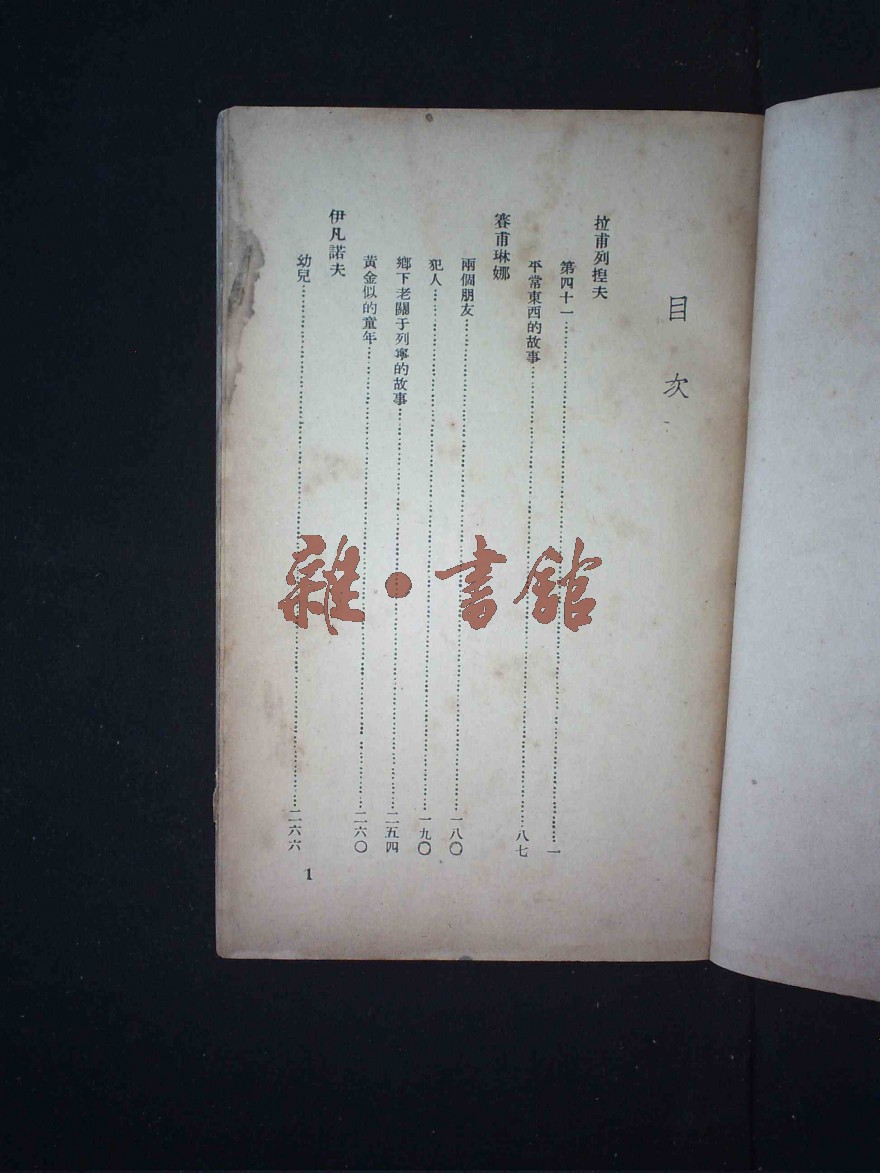 目次
拉甫列揑夫
第四十一……一
平常東西的故事……八七
賽甫琳娜
兩個朋友……一八〇
犯人……一九〇
鄉下老關于列寧的故事……二五四
黃金似的童年……二六〇
伊凡諾夫
幼兒……二六六
1
雜·書館